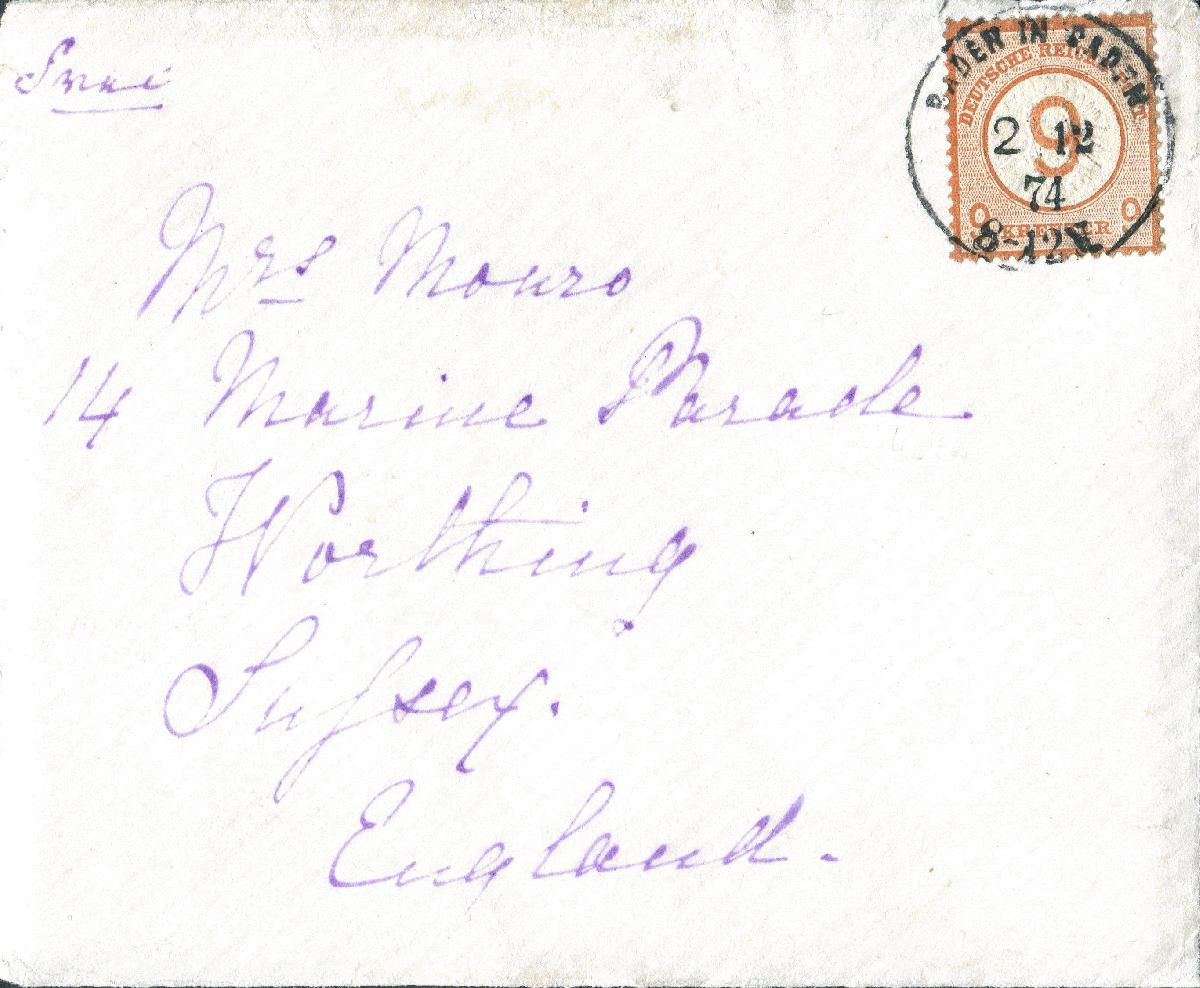 BADEN IN BADEN
2 12
74
8-12 V
DEUTSCHE REICHS-POST
9
9 KREUZER 9
Mrs Monro
14 Marine Parade
Worthing
Sussex.
England.